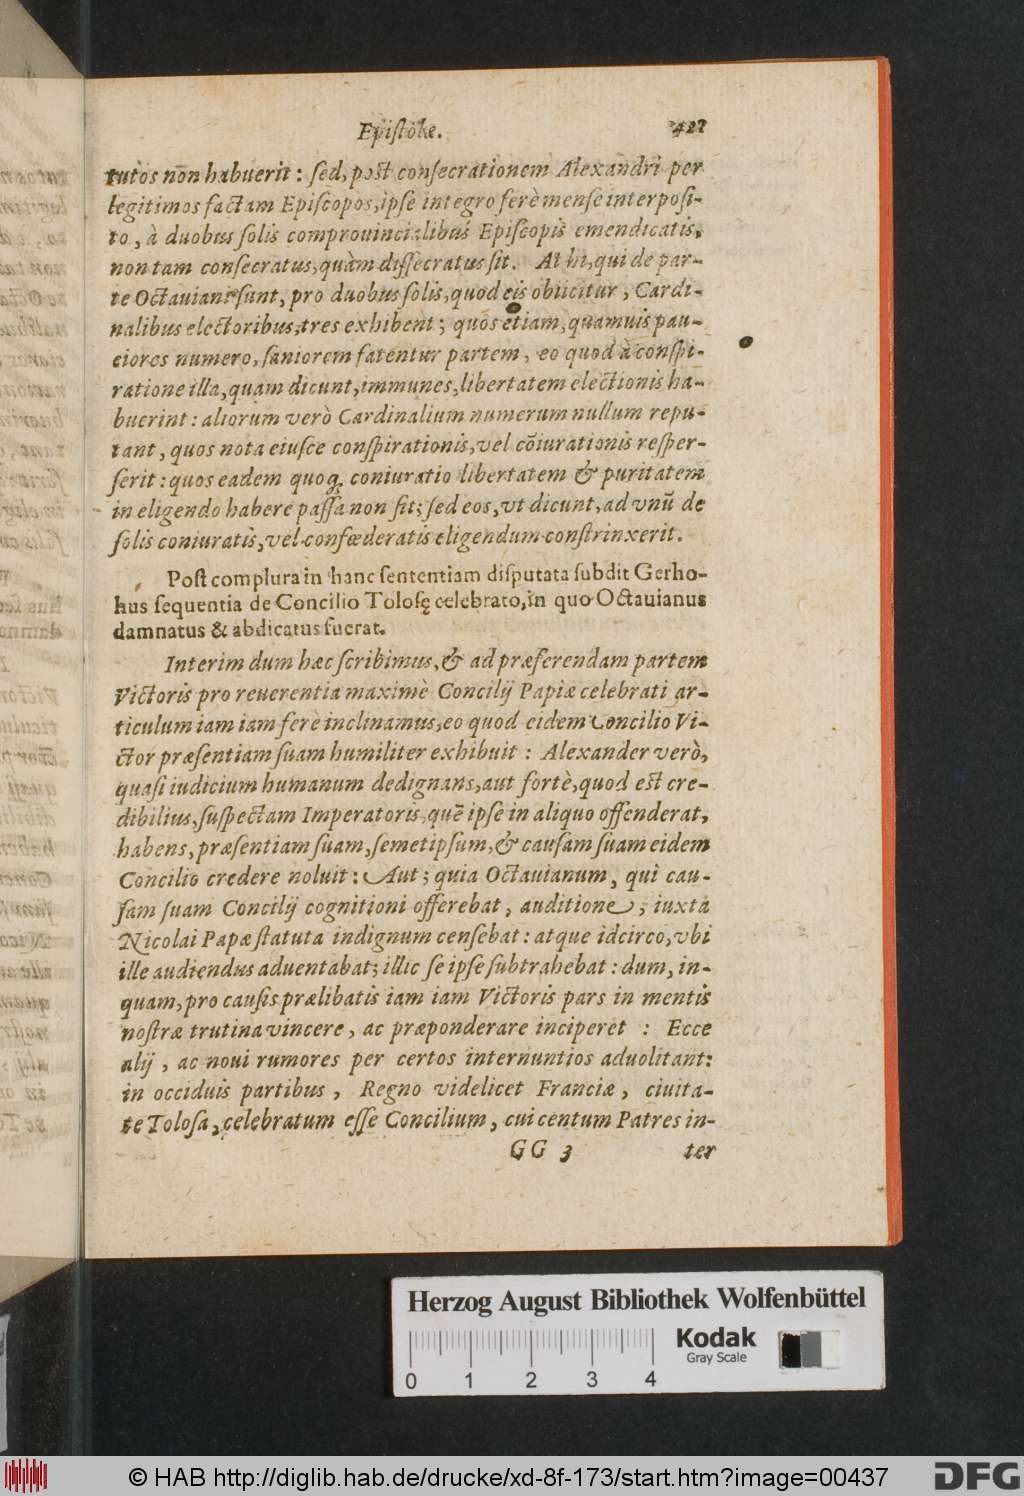 Epistolæ. 427
tutos non habuerit: sed, post consecrationem Alexandri per
legitimos factam Episcopos, ipse integro ferè mense interposi-
to, à duobus solis comprouincialibus Episcopis emendicatis,
non tam consecratus, quàm dissecratus sit. At hi, qui de par-
te Octauiani sunt, pro duobus solis, quod eis obiicitur, Cardi-
nalibus electoribus, tres exhibent; quos etiam, quamuis pau-
ciores numero, saniorem fatentur partem, eo quod à conspi-
ratione illa, quam dicunt, immunes, libertatem electionis ha-
buerint: aliorum verò Cardinalium numerum nullum repu-
tant, quos nota eiusce conspirationis, vel cõiurationis resper-
serit: quos eadem quoq; coniuratio libertatem & puritatem
in eligendo habere passa non sit; sed eos, vt dicunt, ad vnũ de
solis coniuratis, vel confœderatis eligendum constrinxerit.
Post complura in hanc sententiam disputata subdit Gerho-
hus sequentia de Concilio Tolosę celebrato, in quo Octauianus
damnatus & abdicatus fuerat.
Interim dum hæc scribimus, & ad præferendam partem
Victoris pro reuerentia maximè Concilij Papiæ celebrati ar-
ticulum iam iam ferè inclinamus, eo quod eidem Concilio Vi-
ctor præsentiam suam humiliter exhibuit: Alexander verò,
quasi iudicium humanum dedignans, aut fortè, quod est cre-
dibilius, suspectam Imperatoris, quẽ ipse in aliquo offenderat,
habens, præsentiam suam, semetipsum, & causam suam eidem
Concilio credere noluit: Aut; quia Octauianum, qui cau-
sam suam Concilij cognitioni offerebat, auditione, iuxta
Nicolai Papæ statuta indignum censebat: atque idcirco, vbi
ille audiendus aduentabat; illic se ipse subtrahebat: dum, in-
quam, pro causis prælibatis iam iam Victoris pars in mentis
nostræ trutina vincere, ac præponderare inciperet: Ecce
alij, ac noui rumores per certos internuntios aduolitant:
in occiduis partibus, Regno videlicet Franciæ, ciuita-
te Tolosa, celebratum esse Concilium, cui centum Patres in-
GG 3 ter
Herzog August Bibliothek Wolfenbüttel
Kodak
Gray Scale
0 1 2 3 4
© HAB http://diglib.hab.de/drucke/xd-8f-173/start.htm?image=00437
DFG